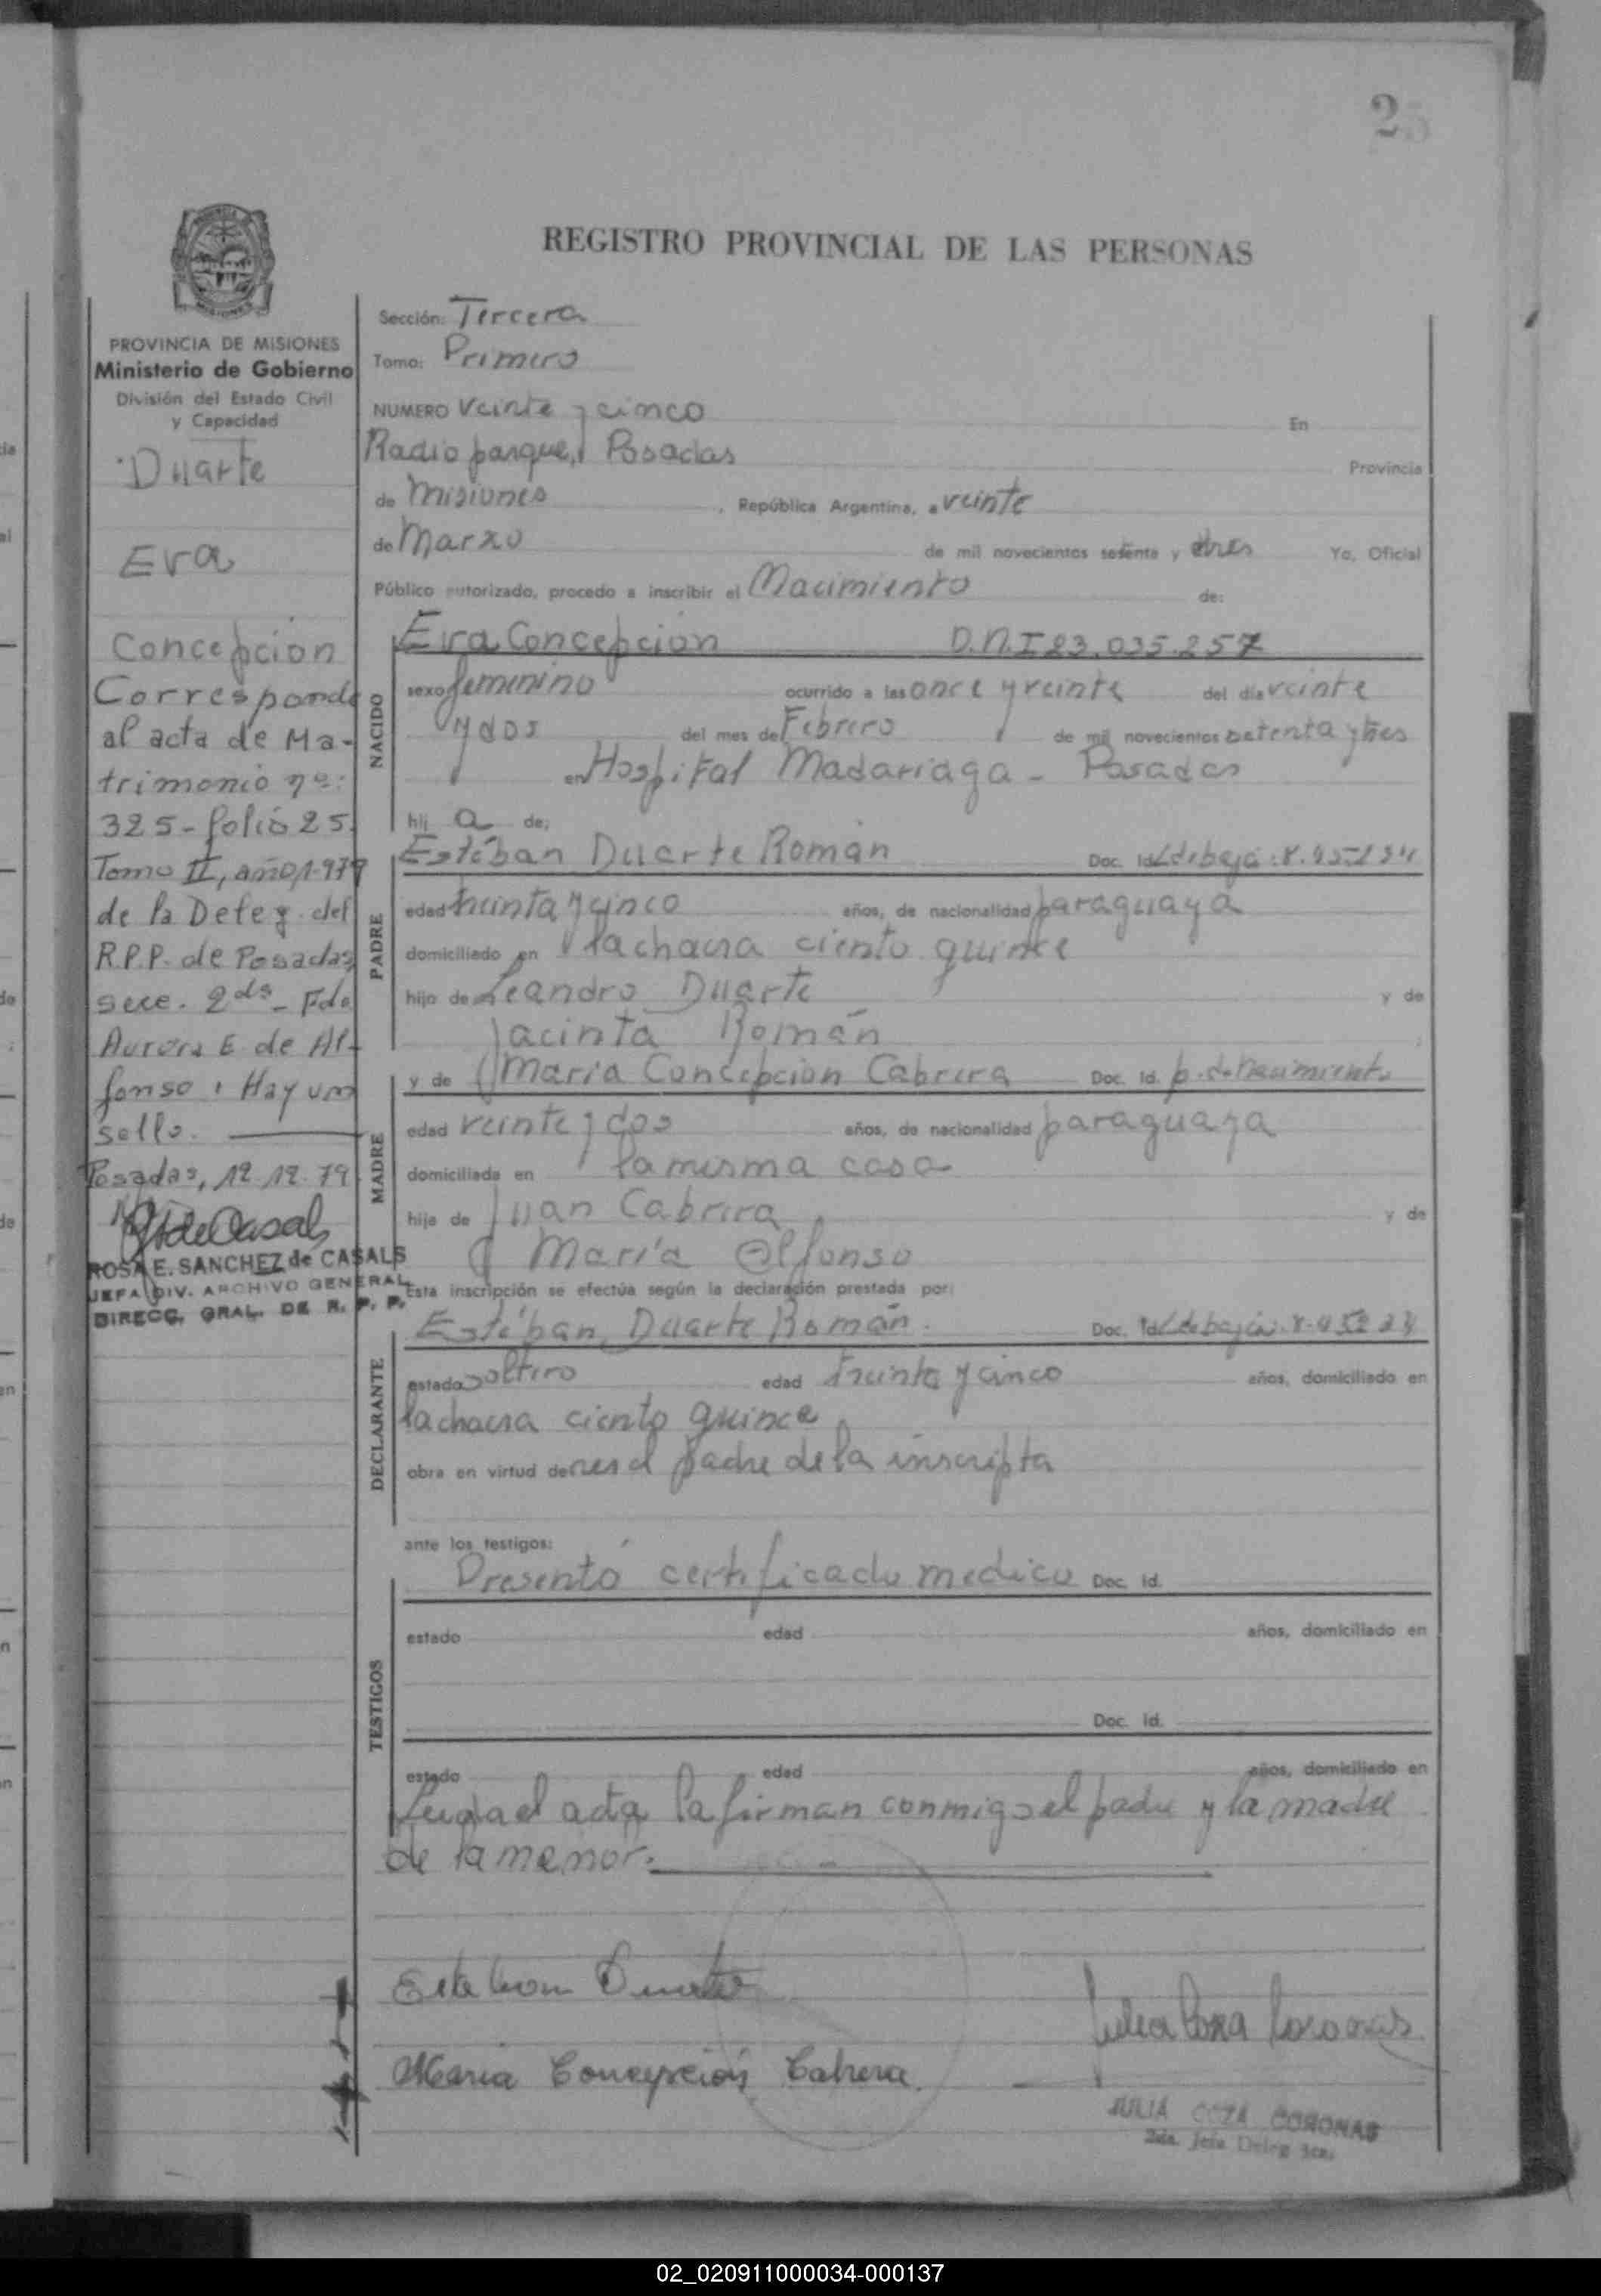 25
REGISTRO PROVINCIAL DE LAS PERSONAS
PROVINCIA DE MISIONES
Ministerio de Gobierno
División del Estado Civil
y Capacidad
Duarte
Eva
Concepcion
Corresponde
al acta de Ma-
trimonio nº:
325-folio 25.
Tomo II, año 1.979
de la Deleg. del
R.P.P. de Posadas,
secc. 2da - Fdo
Aurora E. de Al-
fonso. Hay un
sello.
Posadas, 12.12.79
ROSA E. SANCHEZ de CASALS
JEFA DIV. ARCHIVO GENERAL
DIRECC. GRAL. DE R. P. P.
Sección: Tercera
Tomo: Primero
NUMERO veinte y cinco En
Radio parque, Posadas Provincia
de Misiones, República Argentina, a veinte
de Marzo de mil novecientos setenta y tres Yo, Oficial
Público autorizado, procedo a inscribir el Nacimiento de:
NACIDO
Eva Concepción D.N.I 23.035.257
sexo femenino ocurrido a las once y veinte del día veinte
y dos del mes de Febrero de mil novecientos setenta y tres
en Hospital Madariaga - Posadas
hij a de:
PADRE
Estéban Duarte Román Doc. Id.
edad treinta y cinco años, de nacionalidad paraguaya
domiciliado en la chacra ciento quince
hijo de Leandro Duarte y de
Jacinta Román
MADRE
y de María Concepción Cabrera Doc. Id. p. de nacimiento
edad veinte y dos años, de nacionalidad paraguaya
domiciliada en la misma casa
hija de Juan Cabrera y de
María Alfonso
Esta inscripción se efectúa según la declaración prestada por:
DECLARANTE
Estéban Duarte Román. Doc. Id.
estado soltero edad treinta y cinco años, domiciliado en
la chacra ciento quince
obra en virtud de ser el padre de la inscripta
ante los testigos:
TESTIGOS
Presentó certificado medico Doc. Id.
estado edad años, domiciliado en
Doc. Id.
estado edad años, domiciliado en
Leida el acta la firman conmigo el padre y la madre
de la menor.
Esteban Duarte
Julia Coza Coronas
Maria Concepción Cabrera.
JULIA COZA CORONAS
02_020911000034-000137